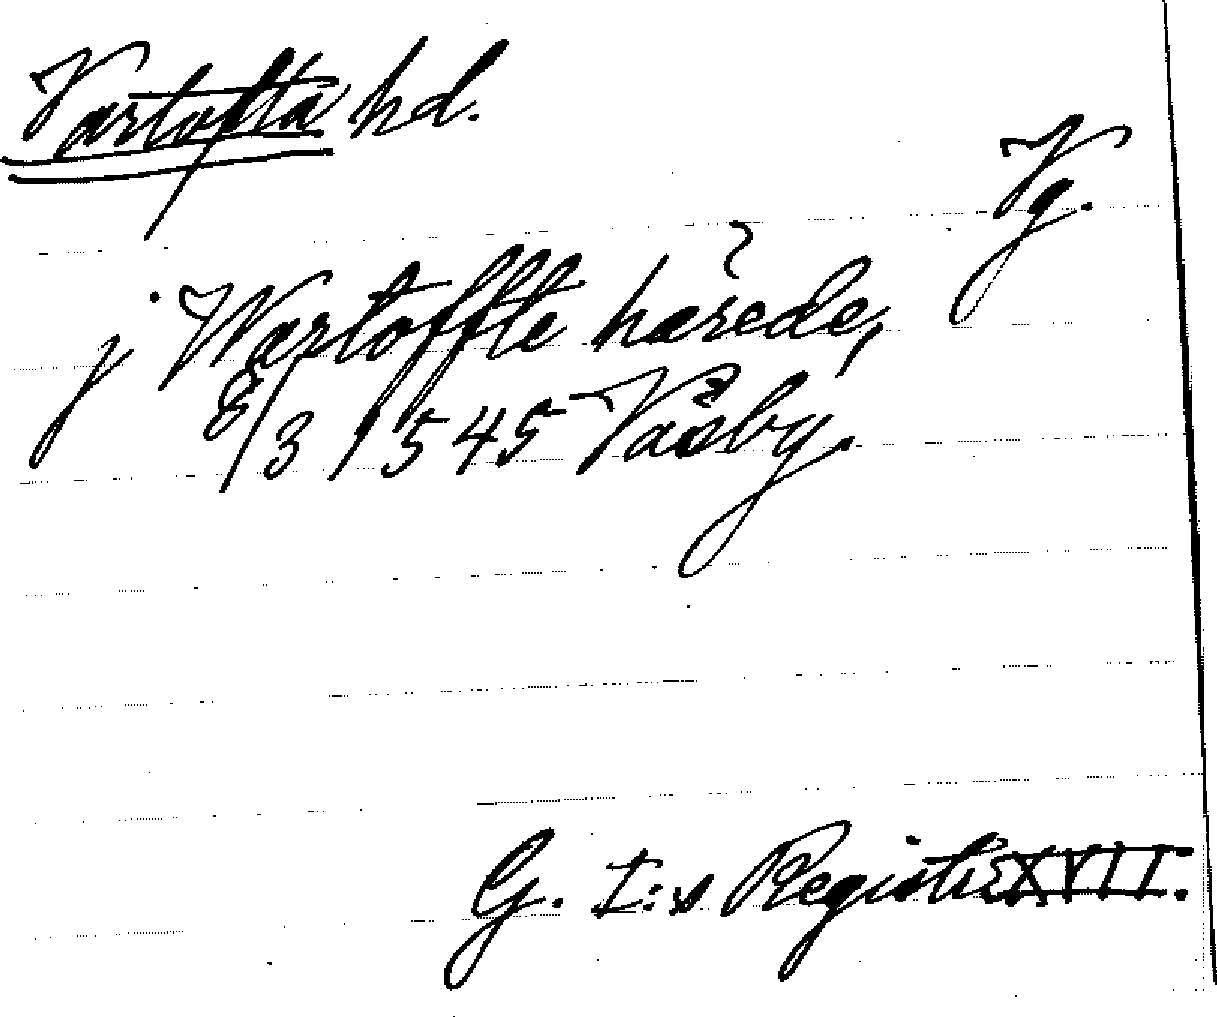 Vartofta hd.
Vg.
j Wartoffte hærede,
8/3 1545 Väsby.
G. I:s Registr. XVII.